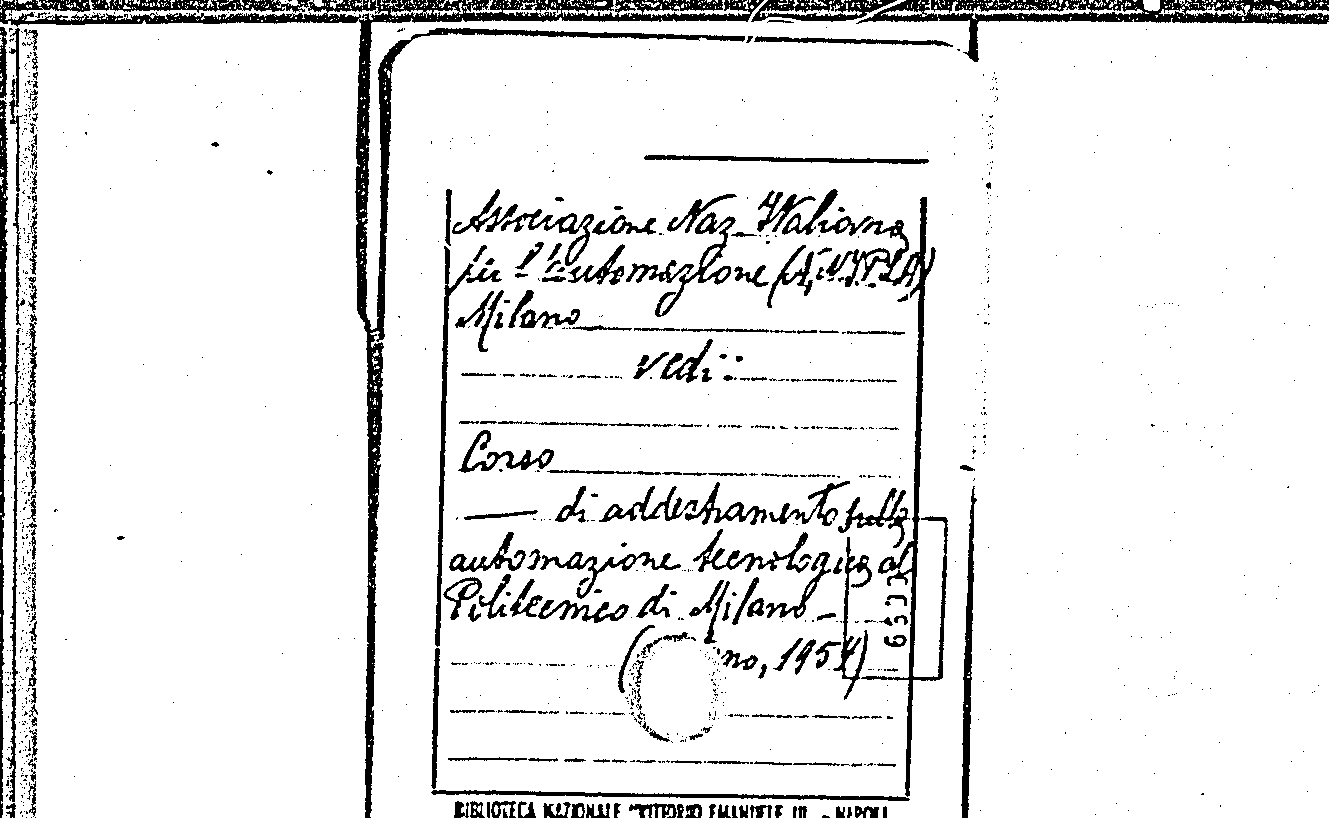 Associazione Naz. Italiana
per l'automazione (A.N.I.P.L.A)
Milano
vedi:
Corso
— di addestramento sulla
automazione tecnologica al
Politecnico di Milano —
no, 1957)
BIBLIOTECA NAZIONALE "VITTORIO EMANUELE III" - NAPOLI